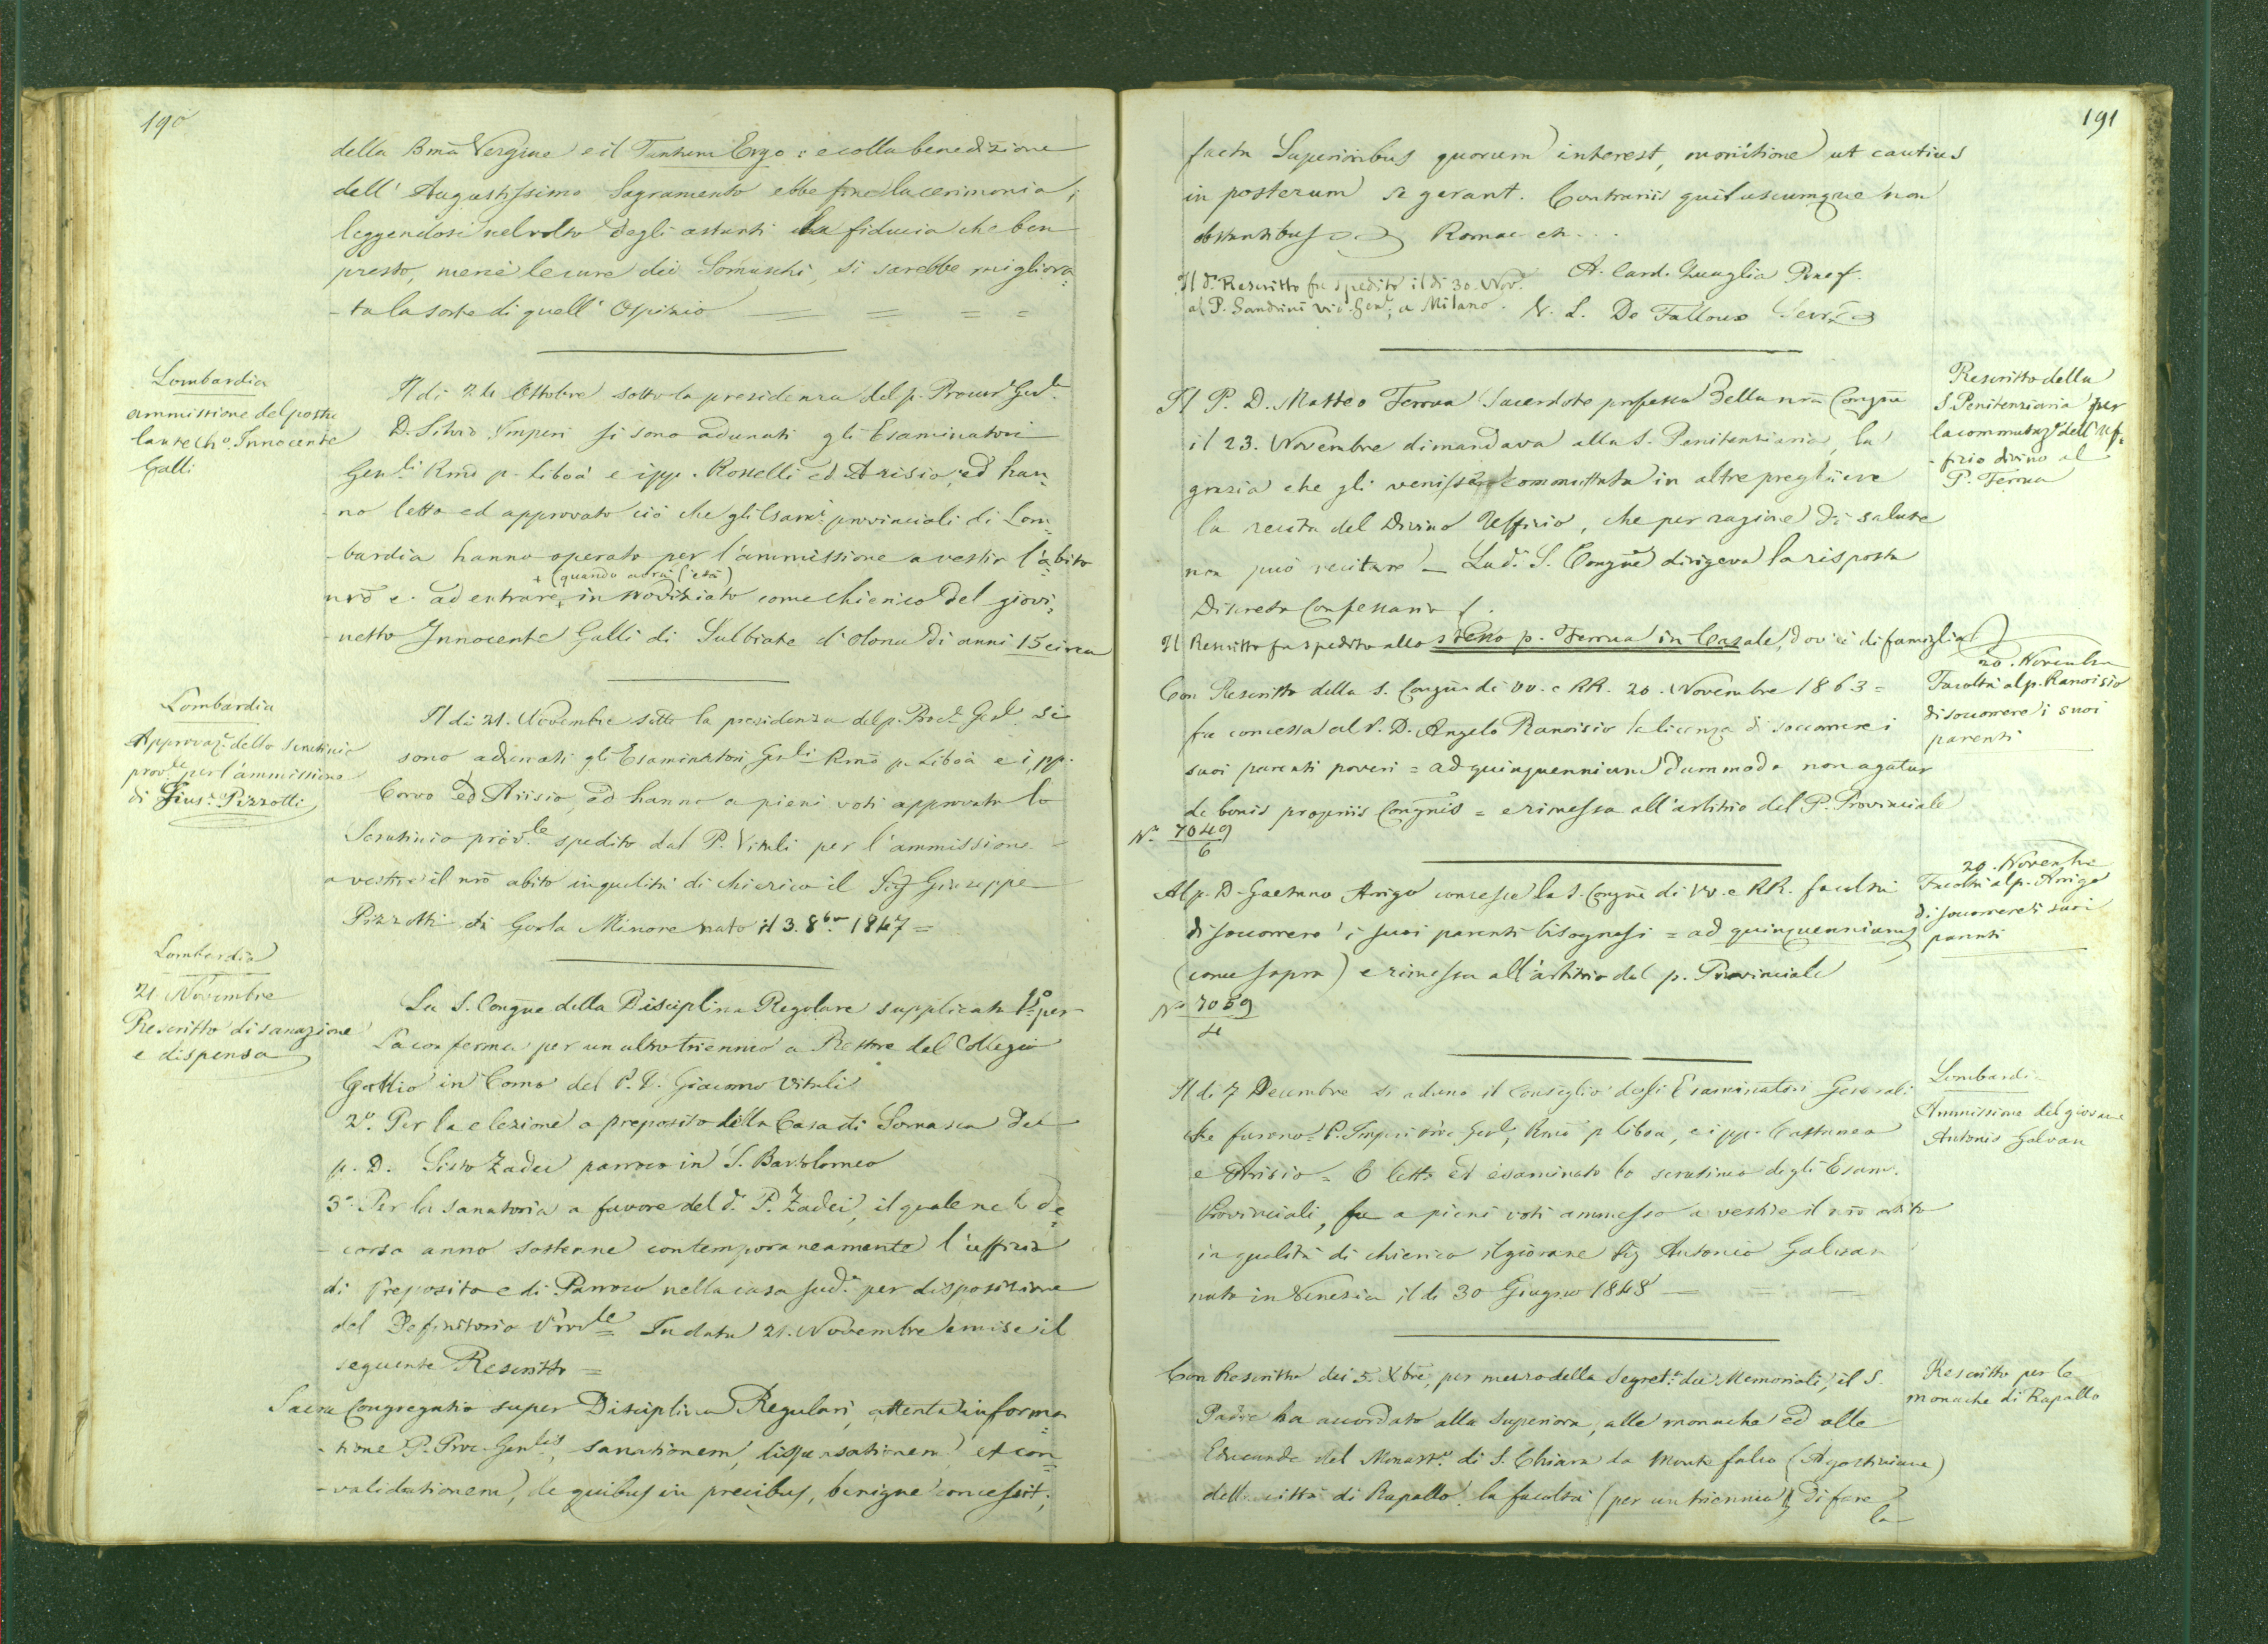 190
della Bma Vergine e il Tantum Ergo: e colla benedizione
dell' Augustissimo Sagramento ebbe fine la cerimonia;
leggendosi nel volto degli astanti la fiducia che ben
presto, mercè le cure dei Somaschi, si sarebbe migliora=
-ta la sorte di quell' Ospizio = = = =
Lombardia
ammissione del postu
lante Cho. Innocente
Galli
Il di 24 Ottobre sotto la presidenza del p. Procur. Genle.
D. Silvio Imperi si sono adunati gli Esaminatori
Genli Rmo p. Liboà e i pp. Rosselli ed Arisio, ed han=
-no letto ed approvato ciò che gli Esami. provinciali di Lom=
-bardia hanno operato per l'ammissione a vestir l'abito
+ (quando avrà l'età)
nro e ad entrare + in noviziato come chierico del giovi=
-netto Innocente Galli di Sulbiate d'Olona di anni 15 circa
Lombardia
Approvaz. dello scrutinio
provle. per l'ammissione
di Gius. Pizzotti
Il di 21. Novembre sotto la presidenza del p. Proc. Genl. si
sono adunati gli Esaminatori Genli Rmo p. Liboà e i pp.
Corvo ed Arisio, ed hanno a pieni voti approvato lo
Scrutinio provle. spedito dal P. Vitali per l'ammissione
a vestire il nro abito in qualità di chierico il Sig Giuseppe
Pizzotti di Gorla Minore nato il 3. 8bre 1847 =
Lombardia
21 Novembre
Rescritto di sanazione
e dispensa
La S. Congne della Disciplina Regolare supplicata 1o per
la conferma per un altro triennio a Rettore del Collegio
Gallio in Como del P. D. Giacomo Vitali
2o. Per la elezione a preposito della Casa di Somasca del
p. D. Sisto Zadei parroco in S. Bartolomeo
3o. Per la sanatoria a favore del d. P. Zadei, il quale nel de=
-corso anno sostenne contemporaneamente l'uffizio
di Preposito e di Parroco nella casa sud. per disposizione
del Definitorio Provle In data 21. Novembre emise il
seguente Rescritto =
Sacra Congregatio super Disciplina Regulari, attenta informa=
-tione P. Proc. Genlis, sanationem, dispensationem et con=
-validationem, de quibus in precibus, benigne concessit;
191
facta Superioribus quorum interest, monitione ut cautius
in posterum se gerant. Contrariis quibuscumque non
obstantibus Romae etc...
A. Card. Quaglia Praef.
Il d. Rescritto fu spedito il di 30. Nov.
al P. Sandrini Vic. Gen., a Milano.
L. De Falloux Secr.
Rescritto della
S. Penitenziaria per
la commutaz. dell'Uf=
-fizio divino al
P. Ferrua
Il P. D. Matteo Ferrua Sacerdote professo della nra Congne
il 23. Novembre dimandava alla S. Penitenziaria, la
grazia che gli venisse commutata in altre preghiere
la recita del Divino Uffizio, che per ragione di salute
non può recitare - La d. S. Congne dirigeva la risposta
Discreto Confessario.
Il Rescritto fu spedito allo stesso p. Ferrua in Casale, dov'è di famiglia
20. Novembre
Facoltà al p. Ranoisio
di soccorrere i suoi
parenti
Con Rescritto della S. Congne di VV. e RR. 20. Novembre 1863 =
fu concessa al P. D. Angelo Ranoisio la licenza di soccorrere i
suoi parenti poveri = ad quinquennium dummodo non agatur
de bonis propriis Congnis = e rimessa all'arbitrio del P. Provinciale
No. 7049
6
20. Novembre
Facoltà al p. Arrigo
di soccorrere i suoi
parenti
Al p. D. Gaetano Arrigo concesse la S. Congne di VV. e RR. facoltà
di soccorrere i suoi parenti bisognosi = ad quinquennium
(come sopra) e rimessa all'arbitrio del p. Provinciale
No 7059
4
Lombardia
Ammissione del giovane
Antonio Galvan
Il di 7 Decembre si adunò il Consiglio degli Esaminatori Generali
che furono P. Imperi Proc Genl, Rmo p. Liboà, e i pp. Cattaneo
e Arisio = E letto ed esaminato lo scrutinio degli Esam.
Provinciali, fu a pieni voti ammesso a vestire il nro abito
in qualità di chierico il giovane Sig Antonio Galvan
nato in Venezia il di 30 Giugno 1848
Rescritto per le
monache di Rapallo
Con Rescritto dei 5. Xbre, per mezzo della Segreta. dei Memoriali, il S.
Padre ha accordato alla Superiora, alle monache ed alle
Educande del Monasto. di S. Chiara da Monte falco (Agostiniane)
della città di Rapallo la facoltà (per un triennio) di fare
la